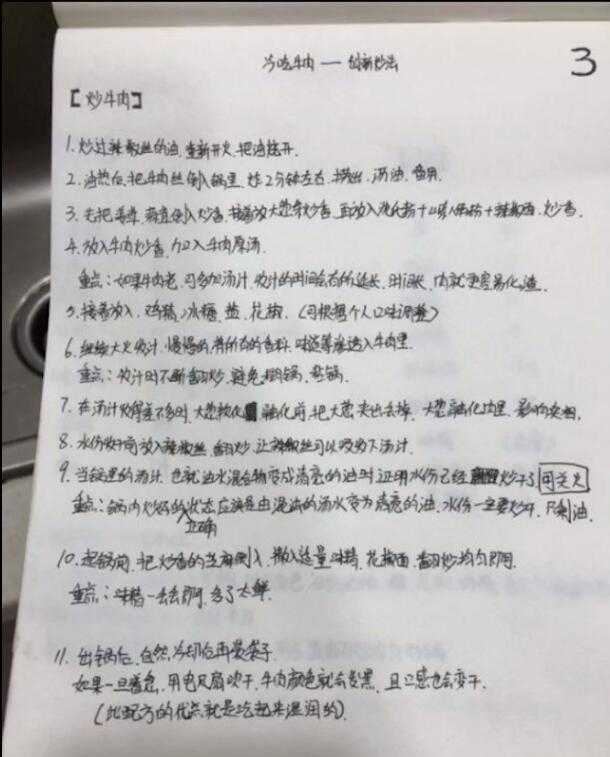 冷吃牛肉 — 创新炒法
3
【炒牛肉】
1. 炒过辣椒丝的油,重新开火,把油烧开.
2. 油热后,把牛肉丝倒入锅里,炸2分钟左右,捞出,沥油,备用.
3. 先把姜,蒜直倒入炒香,接着放大葱条炒香,再放入+ + 辣椒面,炒香.
4. 放入牛肉炒香,加入牛肉原汤.
重点:如果牛肉老,可多加汤汁,收汁的时间会有所延长,时间长,肉就更容易化渣.
5. 接着放入,鸡精,冰糖,盐,花椒.(可根据个人口味调整)
6. 继续大火收汁,慢慢的将所有的香料,味道等渗透入牛肉里.
重点:收汁时不断翻炒,避免糊锅,粘锅.
7. 在汤汁收得差不多时,大葱软化融化前,把大葱夹出去掉,大葱融化在里,影响卖相.
8. 水份收干前放入辣椒丝,翻炒,让辣椒丝可以吸收下汤汁.
9. 当锅里的汤汁,也就油水混合物变成清亮的油时,证明水份已经炒干了 可关火
重点:锅内炒码的正确状态应该是由混浊的汤水变为清亮的油,水份一定要炒干,只剩油.
10. 起锅前,把炒香的芝麻倒入,撒入适量味精,花椒面,翻炒均匀即可.
重点:味精一点点即可,多了太鲜.
11. 出锅后,自然冷却后再装袋子.
如果一旦着急,用电风扇吹干,牛肉颜色就会变黑,且口感也会变干.
(此配方的优点就是吃起来湿润的)